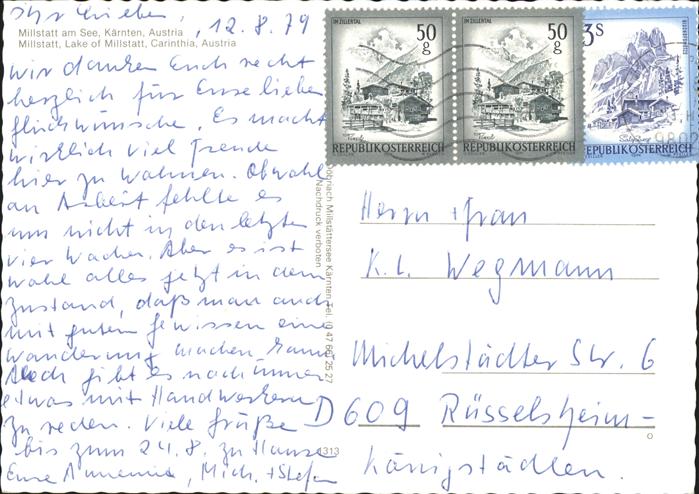 Ihr Lieben, 12.8.79
Millstatt am See, Kärnten, Austria
Millstatt, Lake of Millstatt, Carinthia, Austria
wir danken Euch recht
herzlich für Eure lieben
Glückwünsche. Es macht
wirklich viel Freude
hier zu wohnen. Obwohl
an Arbeit fehlte es
uns nicht in den letzten
vier Wochen. Aber es ist
wohl alles jetzt in dem
Zustand, daß man auch
mit gutem Gewissen eine
Wanderung machen kann.
Noch gibt es noch immer
etwas mit Handwerkern
zu reden. Viele Grüße
bis zum 24.8. zu Hause
Eure Mich. + Stefan
Döbriach Millstättersee Kärnten Tel. (0 47 66) 25 27
Nachdruck verboten
1313
IM ZILLERTAL
50 g
Tirol
REPUBLIK ÖSTERREICH
IM ZILLERTAL
50 g
Tirol
REPUBLIK ÖSTERREICH
3S
Salzburg
REPUBLIK ÖSTERREICH
Herrn + Frau
K. L. Wegmann
Michelstädter Str. 6
D 609 Rüsselsheim-
Königstädten.